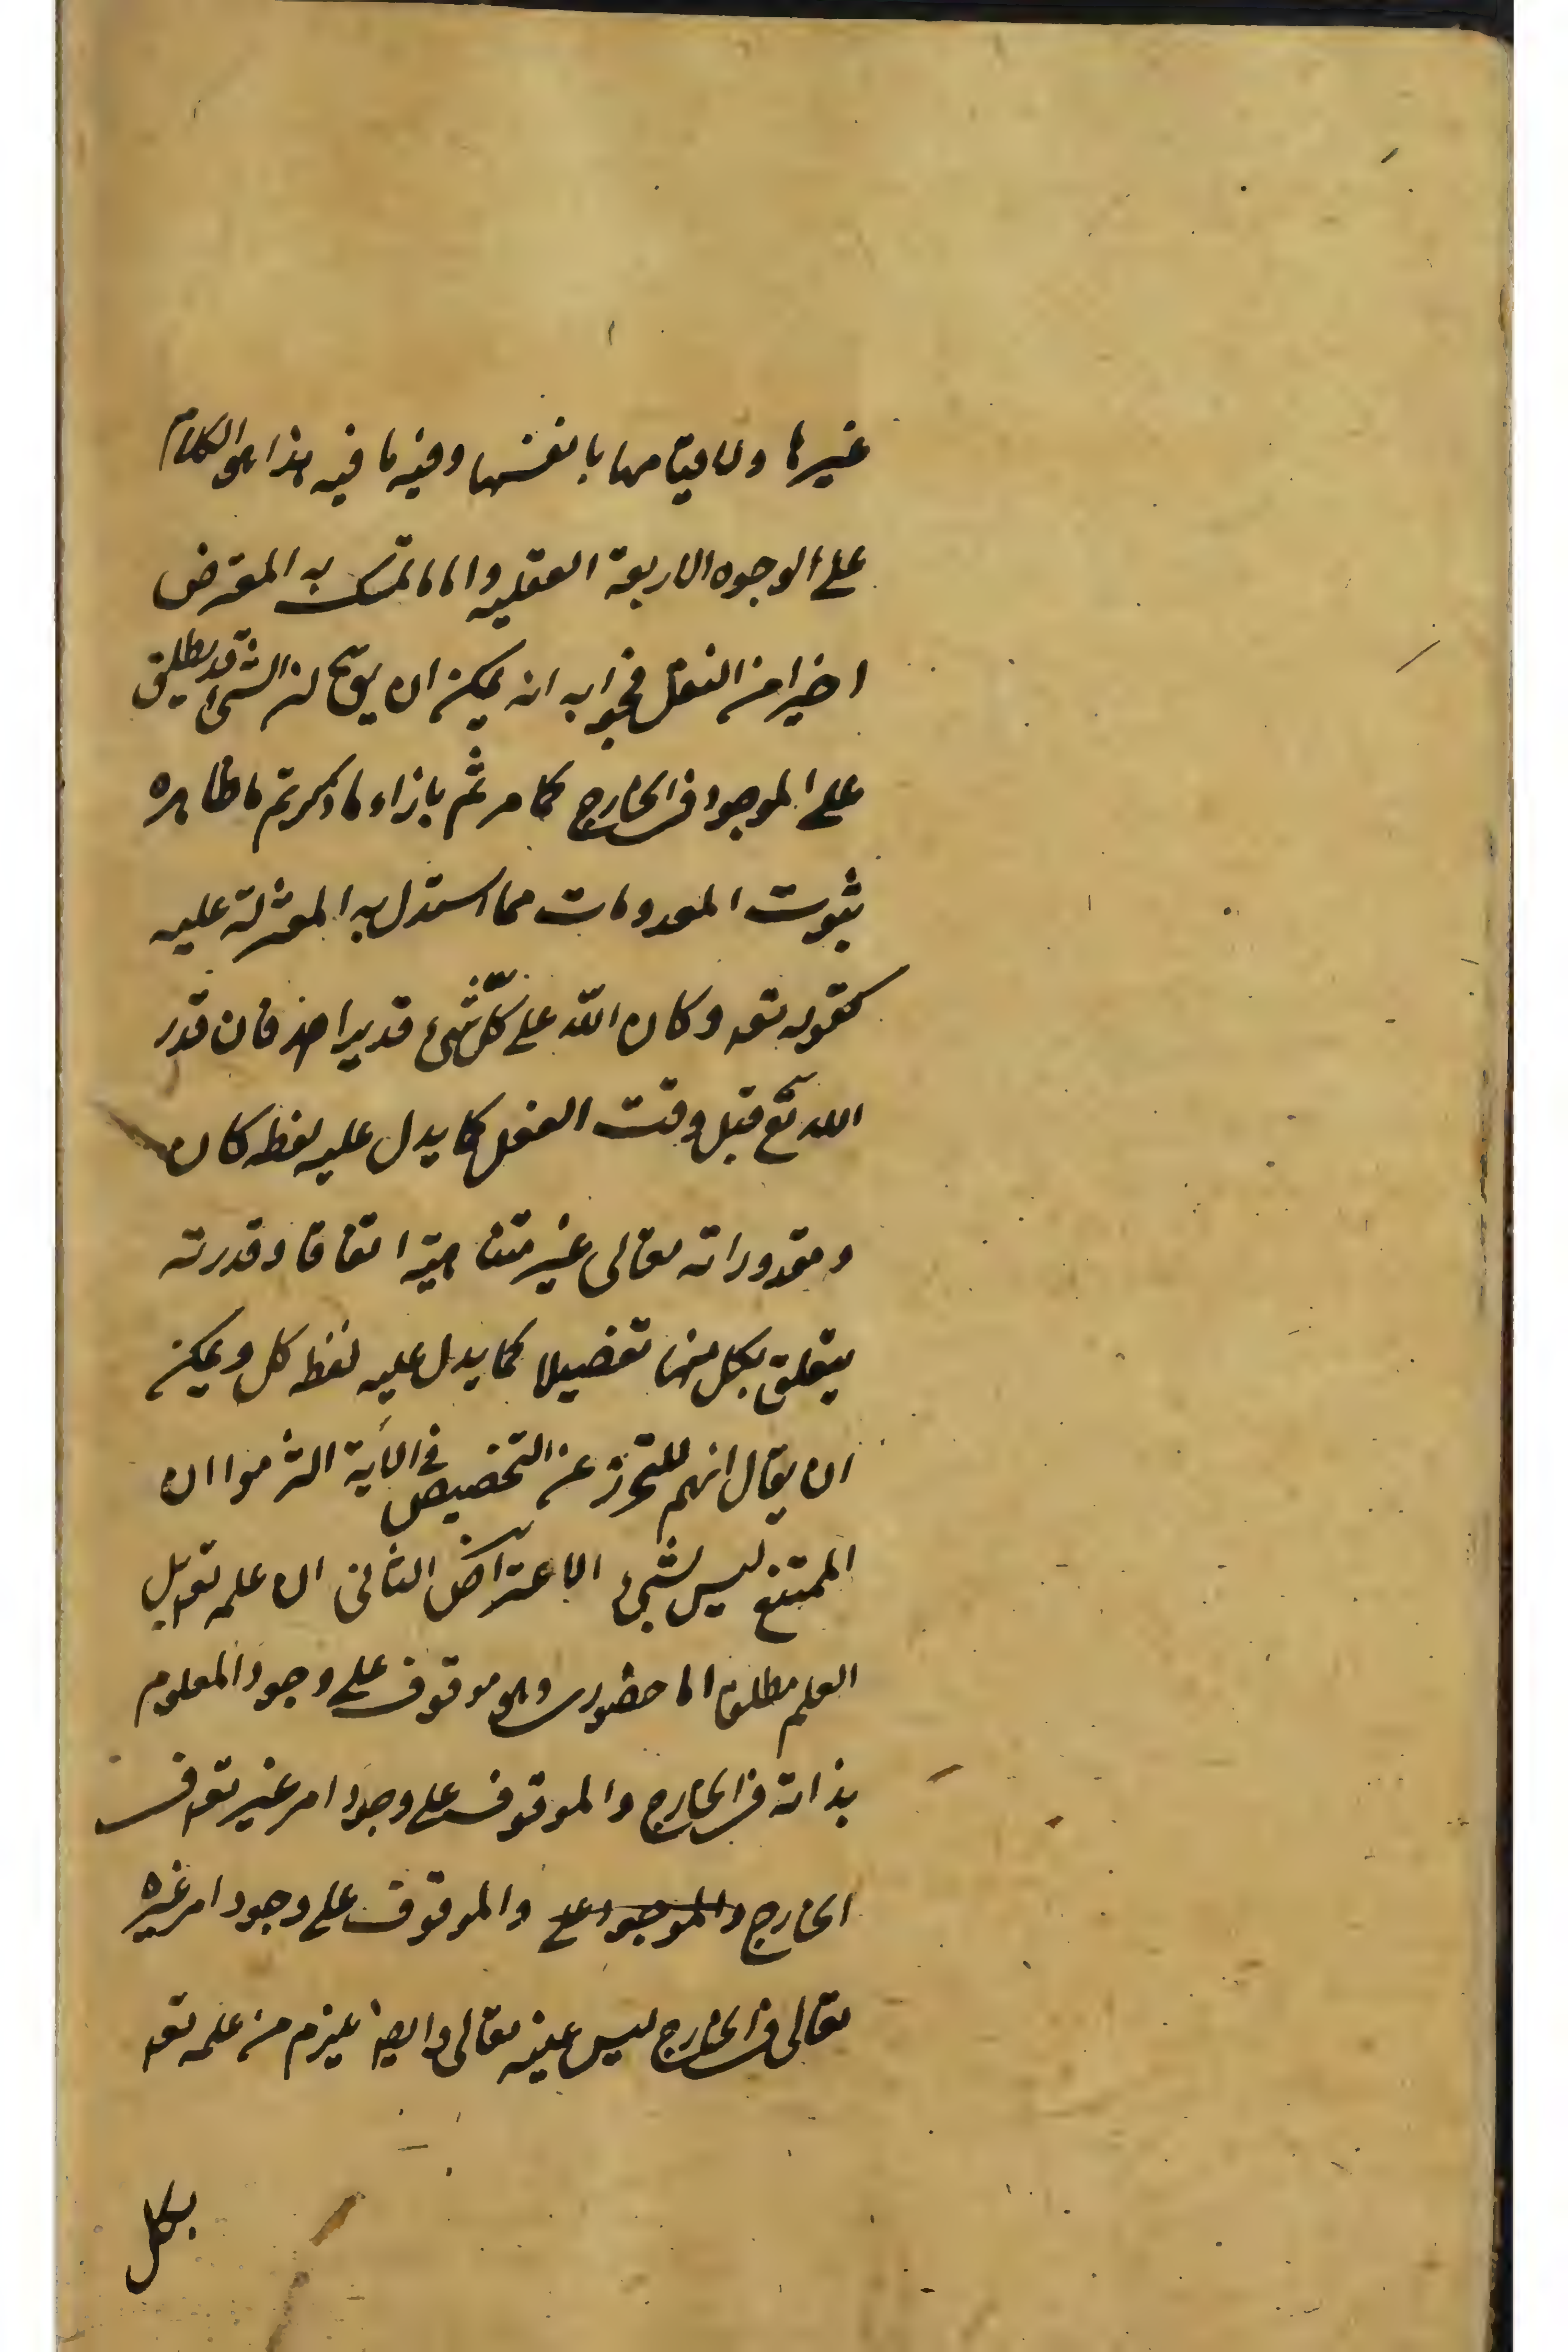 غيرها ولا قيامها بانفسها وفيه ما فيه هذا هو الكلام
على الوجوه الاربعة العقليه واما ما تمسك به المعترض
اخيرا من النقل فجوابه انه يمكن ان الشئ قد يطلق
على الموجود فى الخارج كما مر ثم بازاء ما ذكرتم ما ظاهره
ثبوت المعدومات مما استدل به المعتزلة عليه
كقوله تعه وكان الله على كل شىء قديرا فان قدر
الله تع قبل وقت الفعل كما يدل عليه لفظ كان
ومقدوراته تعالى غير متناهية اتفاقا وقدرته
يتعلق بكل منها تفصيلا كما يدل عليه لفظ كل ويمكن
ان يقال انهم للتحرز عن التخصيص فى الآية التزموا ان
الممتنع ليس بشىء الاعتراض الثانى ان علمه تعه بل
العلم مطلقا اما حضورى وهو موقوف على وجود المعلوم
بذاته فى الخارج والموقوف على وجود امر غير تعه فى
الخارج والموجود على والموقوف على وجود امر غيره
تعالى فى الخارج ليس عينه تعالى وايضا يلزم من علمه تعه
بكل